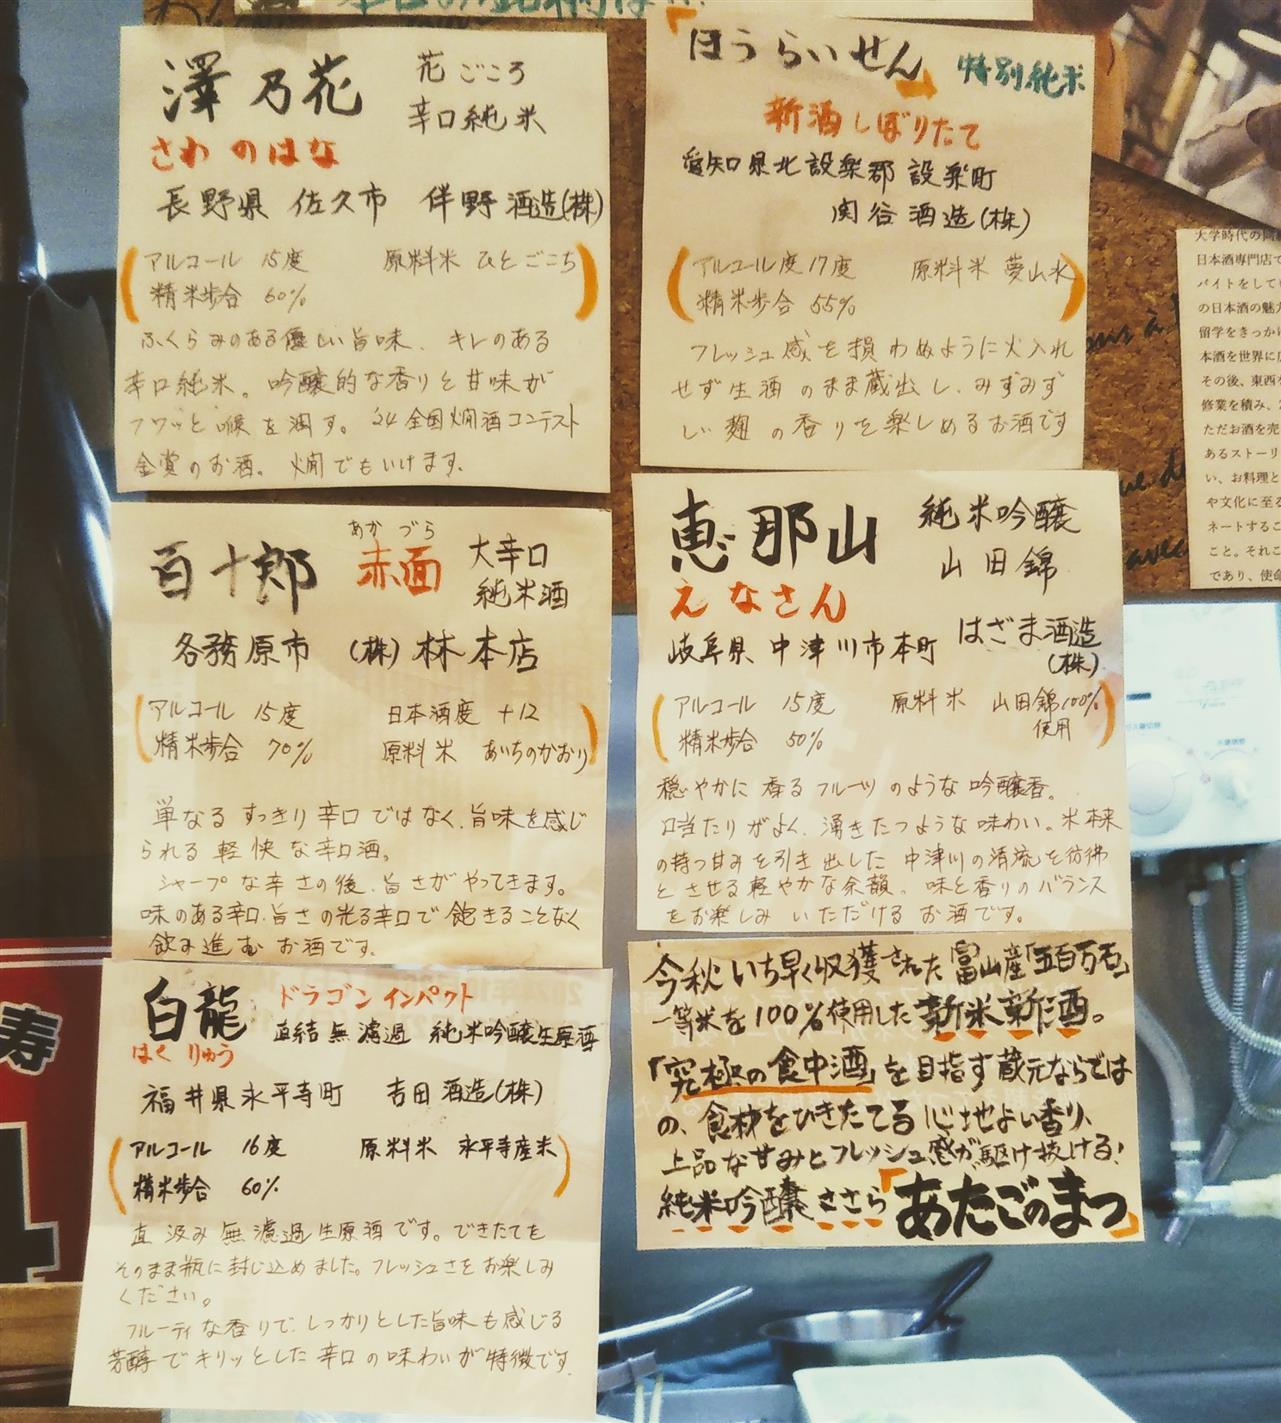 澤乃花
花ごころ
辛口純米
さわのはな
長野県 佐久市 伴野酒造(株)
アルコール 15度 原料米 ひとごこち
精米歩合 60%
ふくらみのある優しい旨味、キレのある
辛口純米。吟醸的な香りと甘味が
フワッと喉を潤す。24全国燗酒コンテスト
金賞のお酒。燗でもいけます。
「ほうらいせん」
特別純米
新酒しぼりたて
愛知県北設楽郡設楽町
関谷酒造(株)
アルコール度17度 原料米 夢山水
精米歩合 55%
フレッシュ感を損わぬように火入れ
せず生酒のまま蔵出し、みずみず
しい麹の香りを楽しめるお酒です
百十郎
あかづら
赤面
大辛口
純米酒
各務原市 (株)林本店
アルコール 15度 日本酒度 +12
精米歩合 70% 原料米 あいちのかおり
単なるすっきり辛口ではなく、旨味を感じ
られる軽快な辛口酒。
シャープな辛さの後、旨さがやってきます。
味のある辛口、旨さの光る辛口で飽きることなく
飲み進むお酒です。
恵那山
純米吟醸
山田錦
えなさん
岐阜県中津川市本町
はざま酒造
(株)
アルコール 15度 原料米 山田錦100%
使用
精米歩合 50%
穏やかに香るフルーツのような吟醸香。
口当たりがよく、湧きたつような味わい。米本来
の持つ甘みを引き出した中津川の清流を彷彿
とさせる軽やかな余韻。味と香りのバランス
をお楽しみいただけるお酒です。
白龍
ドラゴンインパクト
はくりゅう
直結無濾過 純米吟醸生原酒
福井県永平寺町 吉田酒造(株)
アルコール 16度 原料米 永平寺産米
精米歩合 60%
直汲み無濾過生原酒です。できたてを
そのまま瓶に封じ込めました。フレッシュさをお楽しみ
ください。
フルーティな香りで、しっかりとした旨味も感じる
芳醇でキリッとした辛口の味わいが特徴です
今秋いち早く収獲された富山産「五百万石」
一等米を100%使用した新米新酒。
「究極の食中酒」を目指す蔵元ならでは
の、食材をひきたてる心地よい香り、
上品な甘みとフレッシュ感が駆け抜ける!
純米吟醸ささら「あたごのまつ」
日本酒専門店で
バイトをしてい
の日本酒の魅力
留学をきっかけ
本酒を世界に広
その後、東西
修業を積み、
ただお酒を売
あるストーリ
い、お料理と
や文化に至る
ネートするこ
こと。それこ
であり、使命
寿